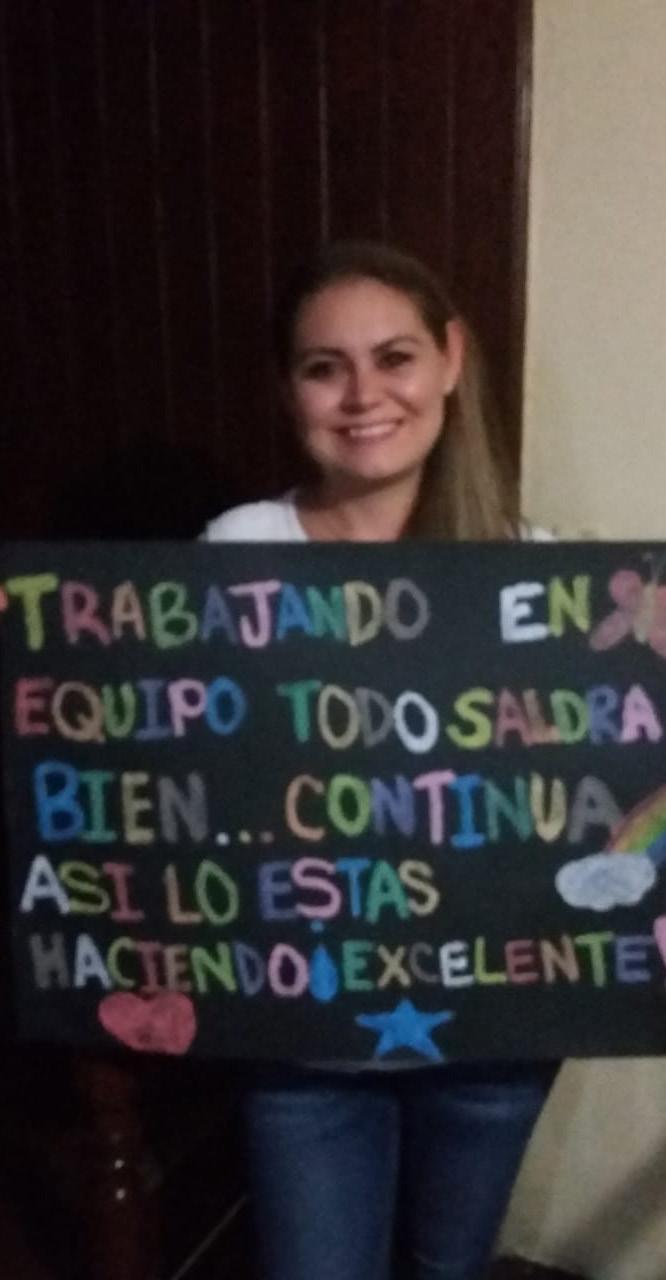 TRABAJANDO EN
EQUIPO TODO SALDRA
BIEN... CONTINUA
ASI LO ESTAS
HACIENDO ¡EXCELENTE!